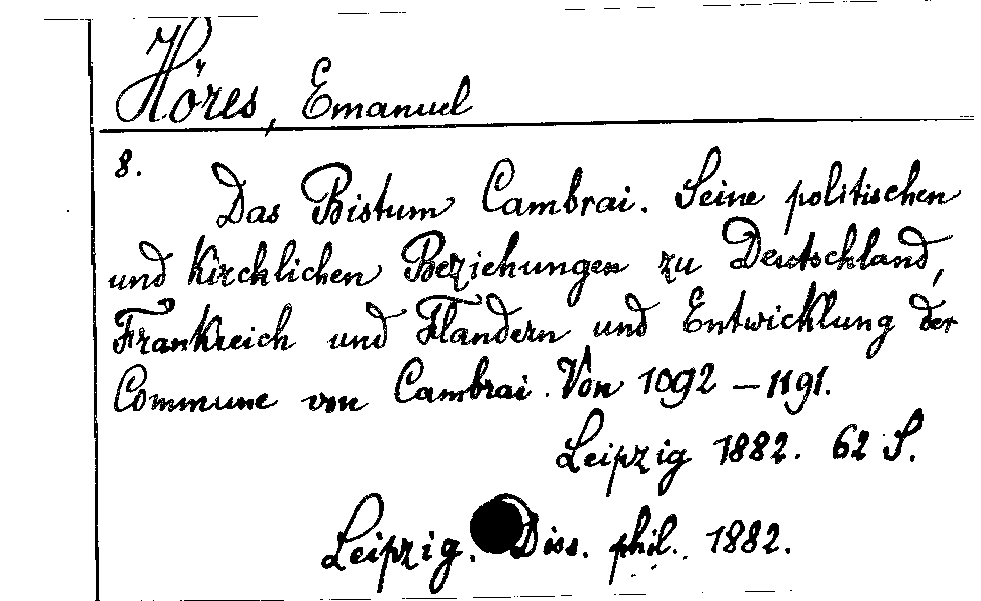 Höres, Emanuel
8.
Das Bistum Cambrai. Seine politischen
und kirchlichen Beziehungen zu Deutschland,
Frankreich und Flandern und Entwicklung der
Commune von Cambrai. Von 1092 – 1191.
Leipzig 1882. 62 S.
Leipzig. Diss. phil. 1882.